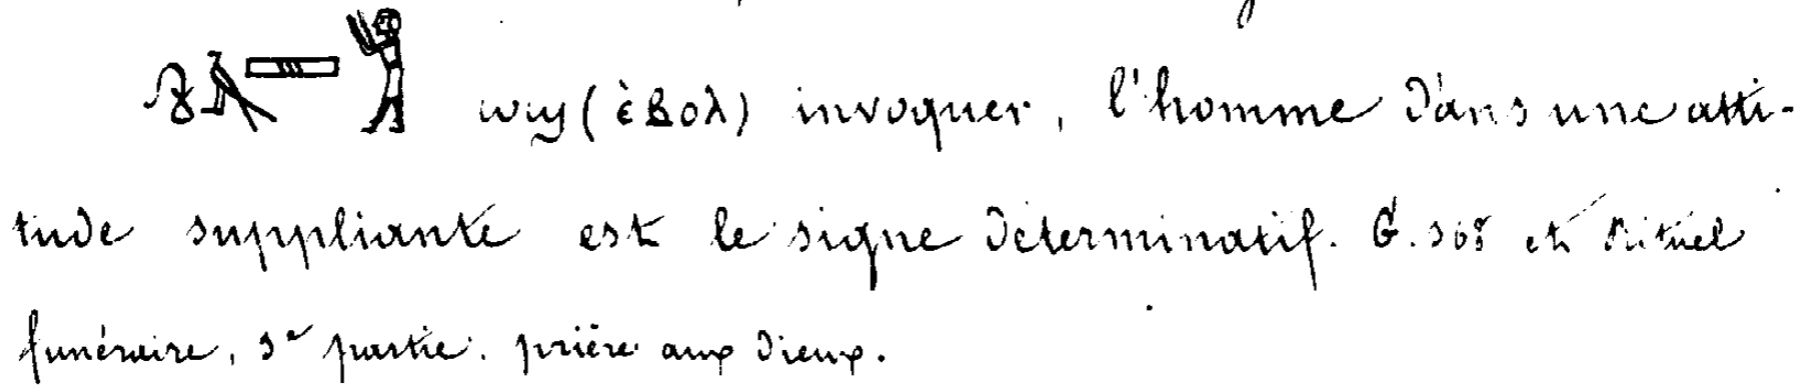 𓍯𓄿𓈙𓀃 ⲱϣ (ⲉ̀ⲃⲟⲗ) invoquer, l'homme dans une atti-
tude suppliante est le signe déterminatif. G. 368 et Rituel
funéraire, 3e partie. prière aux dieux.